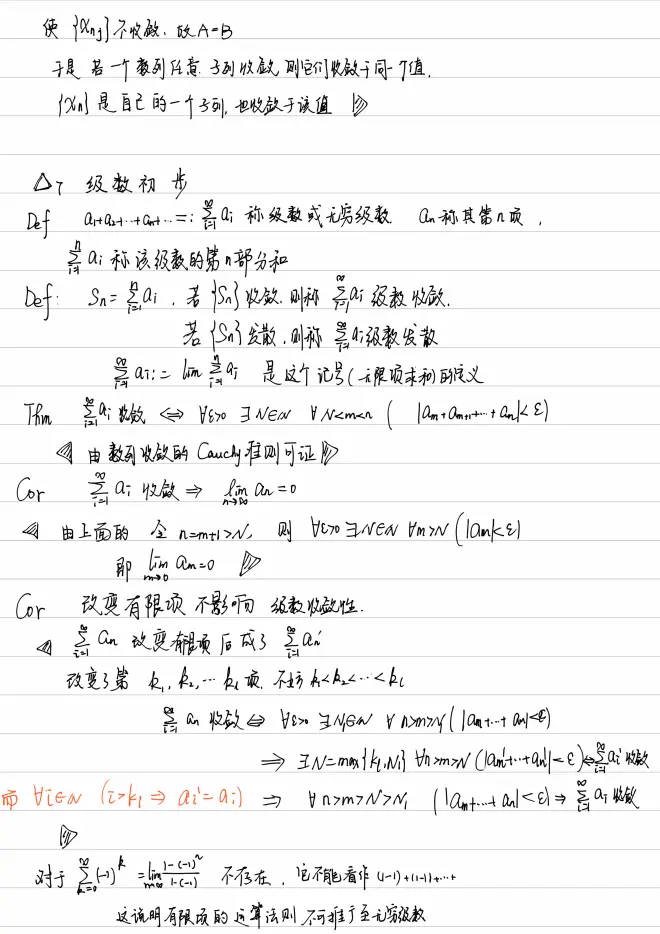 使 {x_{n_j}} 不收敛. 故A=B
于是 若一个数列任意子列收敛,则它们收敛于同一个值.
{x_n} 是自己的一个子列,也收敛于该值 ▷
△7 级数初步
Def a₁+a₂+…+aₙ+… =: ∑_{i=1}^{∞} a_i 称级数或无穷级数. aₙ称其第n项,
∑_{i=1}^{n} a_i 称该级数的第n部分和
Def: Sₙ=∑_{i=1}^{n} a_i . 若 {Sₙ} 收敛,则称 ∑_{i=1}^{∞} a_i 级数收敛.
若 {Sₙ} 发散,则称 ∑_{i=1}^{∞} a_i 级数发散
∑_{i=1}^{∞} a_i := lim ∑_{i=1}^{n} a_i 是这个记号(无限项求和)的定义
Thm ∑_{i=1}^{∞} a_i 收敛 ⇔ ∀ε>0 ∃N∈ℕ ∀N<m<n ( |a_m+a_{m+1}+…+a_n|<ε)
◁ 由数列收敛的Cauchy准则可证 ▷
Cor ∑_{i=1}^{∞} a_i 收敛 ⇒ lim_{n→∞} aₙ=0
◁ 由上面的 令 n=m+1>N, 则 ∀ε>0 ∃N∈ℕ ∀m>N (|a_m|<ε)
即 lim_{m→∞} a_m=0 ▷
Cor 改变有限项 不影响 级数收敛性.
◁ ∑_{i=1}^{∞} aₙ 改变有限项后成了 ∑_{i=1}^{∞} aₙ'
改变了第 k₁, k₂, … k_l 项. 不妨 k₁<k₂<…<k_l
∑_{i=1}^{∞} aₙ 收敛 ⇔ ∀ε>0 ∃N₁∈ℕ ∀ n>m>N₁ ( |a_m+…+a_n|<ε)
⇒ ∃N=max{k_l,N₁} ∀n>m>N (|a_m'+…+a_n'|<ε) ⇔ ∑_{i=1}^{∞} a_i' 收敛
而 ∀i∈ℕ (i>k_l ⇒ a_i'=a_i) ⇒ ∀ n>m>N>N₁ ( |a_m+…+a_n|<ε) ⇒ ∑_{i=1}^{∞} a_i 收敛
▷
对于 ∑_{k=0}^{∞} (-1)^k = lim_{n→∞} (1-(-1)^n)/(1-(-1)) 不存在, 它不能看作 (1-1)+(1-1)+…+
这说明有限项的运算法则 不可推广至无穷级数